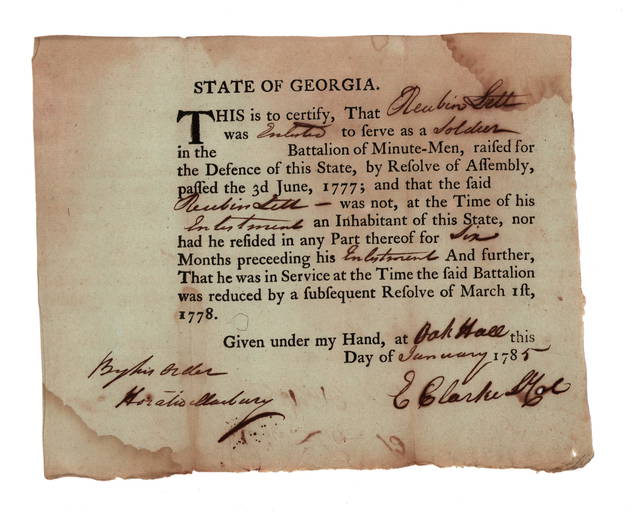 STATE OF GEORGIA.
THIS is to certify, That Reubin Lett
was Enlisted to serve as a Soldier
in the Battalion of Minute-Men, raiſed for
the Defence of this State, by Reſolve of Aſſembly,
paſſed the 3d June, 1777; and that the ſaid
Reubin Lett — was not, at the Time of his
Enlistment an Inhabitant of this State, nor
had he reſided in any Part thereof for Six
Months preceeding his Enlistment And further,
That he was in Service at the Time the ſaid Battalion
was reduced by a ſubſequent Reſolve of March 1ſt,
1778.
Given under my Hand, at Oak Hall this
Day of January 1785
By his order
Horatio Marbury
E Clarke Lt Col